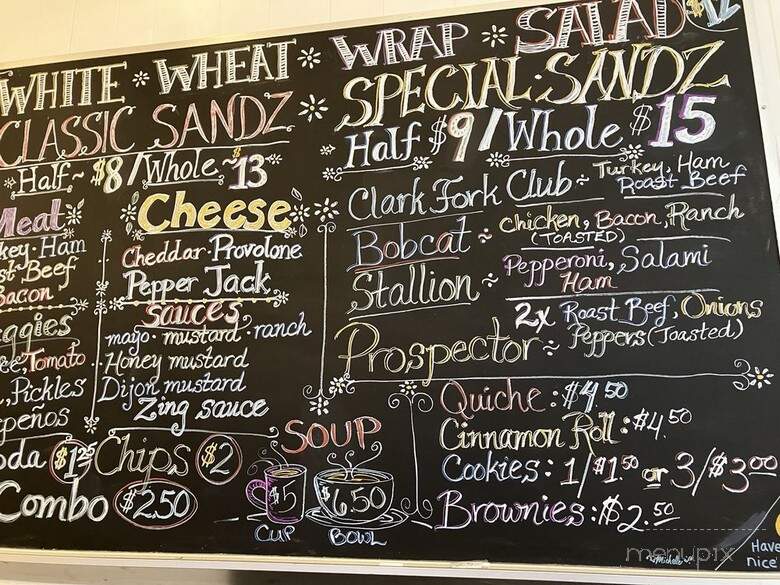 WHITE * WHEAT * WRAP * SALAD $12
CLASSIC SANDZ
Half ~ $8 / Whole ~ $13
Meat
key · Ham
st Beef
Bacon
ggies
ee, Tomato
, Pickles
peños
Cheese
Cheddar · Provolone
Pepper Jack
Sauces
mayo · mustard · ranch
Honey mustard
Dijon mustard
Zing sauce
oda $1.25 Chips $2
Combo $2.50
SPECIAL · SANDZ
Half $9 / Whole $15
Clark Fork Club ~ Turkey, Ham
Roast Beef
Bobcat ~ Chicken, Bacon, Ranch
(TOASTED)
Stallion ~ Pepperoni, Salami
Ham
Prospector ~ 2x Roast Beef, Onions
Peppers (Toasted)
SOUP
$5
CUP
$6.50
BOWL
Quiche: $4.50
Cinnamon Roll: $4.50
Cookies: 1/$1.50 or 3/$3.00
Brownies: $2.50
Michelle
Have
nice
menupix